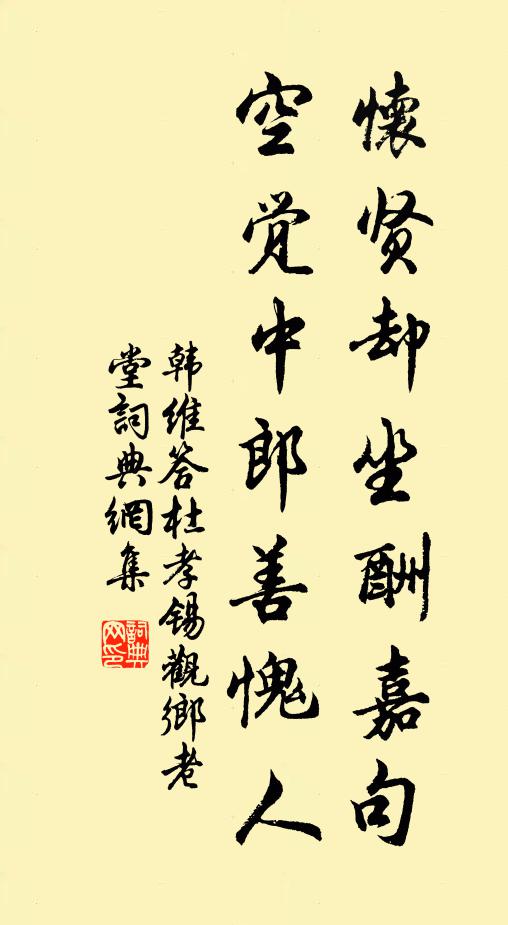 懷贤却坐酬嘉句
空觉中郎善愧人
韩維答杜孝锡觀鄉老
堂詞典網集
詞典
网印